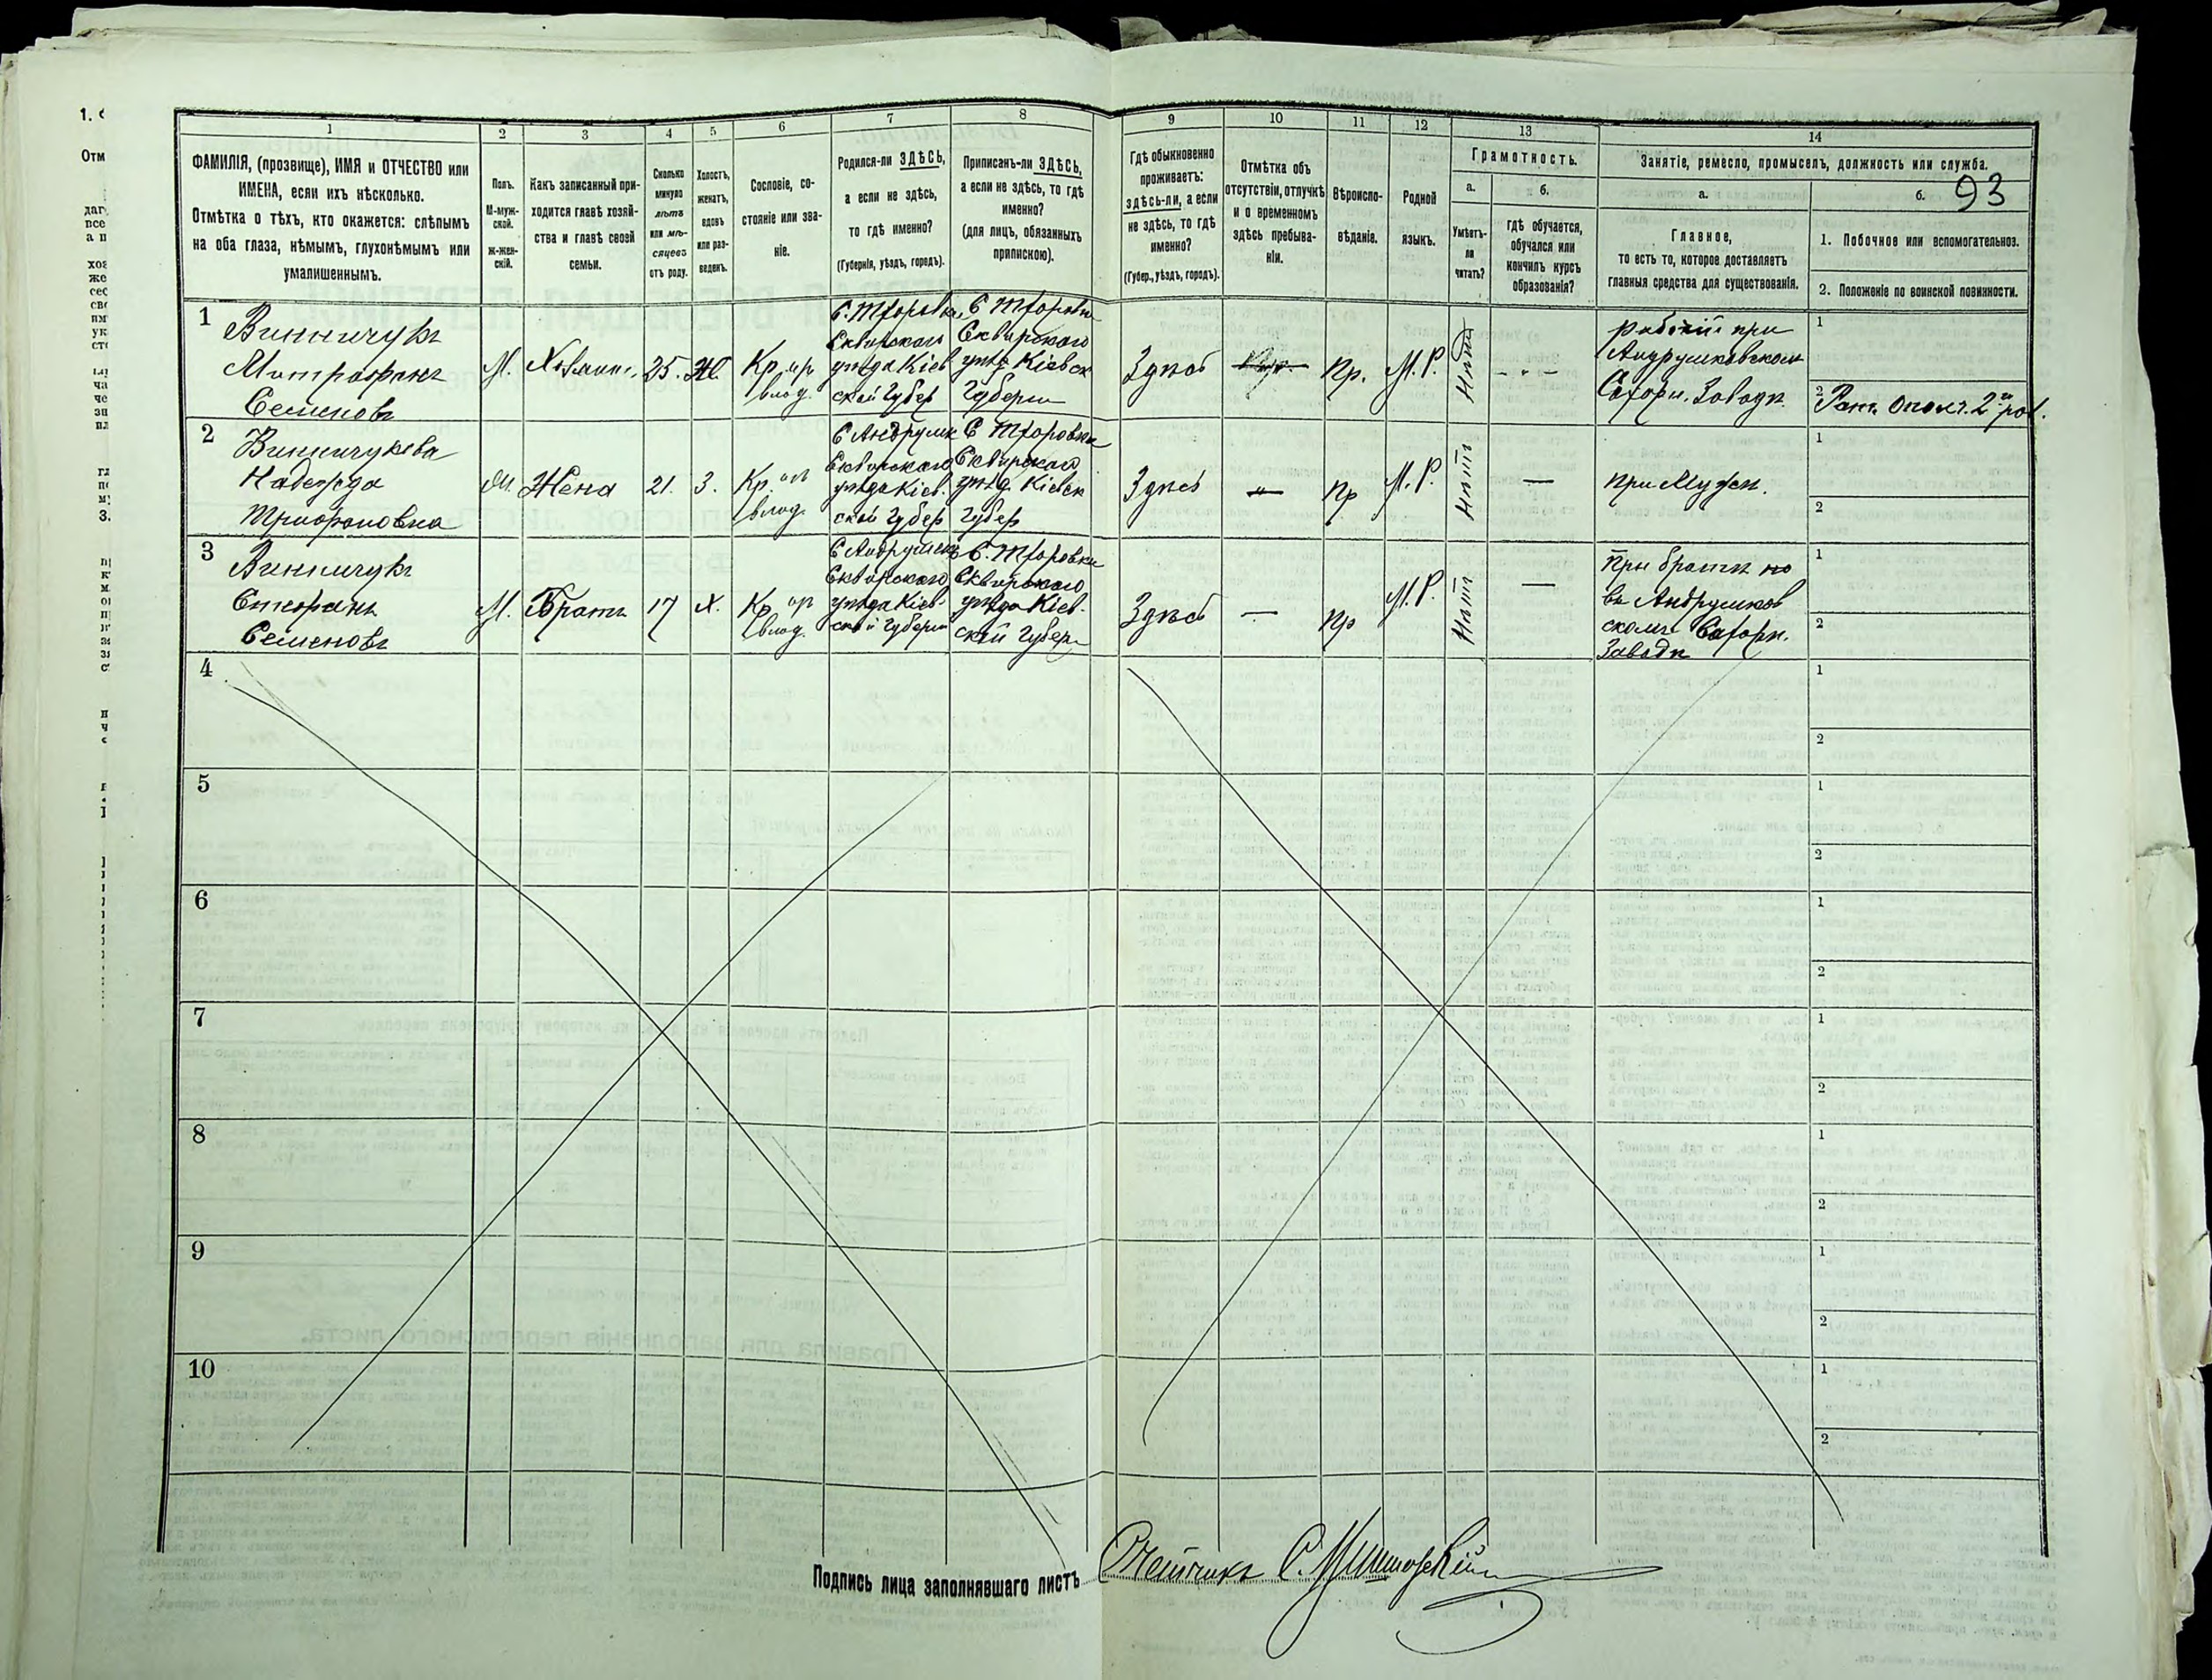 1 2 3 4 5 6 7 8 9 10 11 12 13 14
ФАМИЛІЯ, (прозвище), ИМЯ и ОТЧЕСТВО или
ИМЕНА, если ихъ нѣсколько.
Отмѣтка о тѣхъ, кто окажется: слѣпымъ
на оба глаза, нѣмымъ, глухонѣмымъ или
умалишеннымъ.
Полъ.
М-муж-
ской.
ж-жен-
скій.
Какъ записанный при-
ходится главѣ хозяй-
ства и главѣ своей
семьи.
Сколько
минуло
лѣтъ
или мѣ-
сяцевъ
отъ роду.
Холостъ,
женатъ,
вдовъ
или раз-
веденъ.
Сословіе, со-
стояніе или зва-
ніе.
Родился-ли ЗДѢСЬ,
а если не здѣсь,
то гдѣ именно?
(Губернія, уѣздъ, городъ).
Приписанъ-ли ЗДѢСЬ,
а если не здѣсь, то гдѣ
именно?
(для лицъ, обязанныхъ
припискою).
Гдѣ обыкновенно
проживаетъ:
здѣсь-ли, а если
не здѣсь, то гдѣ
именно?
(Губер., уѣздъ, городъ).
Отмѣтка объ
отсутствіи, отлучкѣ
и о временномъ
здѣсь пребыва-
ніи.
Вѣроиспо-
вѣданіе.
Родной
языкъ.
Грамотность.
а.
Умѣетъ-
ли
читать?
б.
гдѣ обучается,
обучался или
кончилъ курсъ
образованія?
Занятіе, ремесло, промыселъ, должность или служба.
а.
Главное,
то есть то, которое доставляетъ
главныя средства для существованія.
б. 93
1. Побочное или вспомогательное.
2. Положеніе по воинской повинности.
1
Винничукъ
Митрофанъ
Семеновъ
М.
Хозяинъ.
25.
Ж.
Кр. ир
влад.
Сквирскаго
уѣзда Кіев
ской Губер
Сквирскаго
Губерни
Здѣсь
Пр.
М.Р.
Нѣтъ
рабочій при
Андрушковском
Сахарн. Заводѣ
1
2 Рат. Ополч. 2го раз.
2
Винничукова
Надежда
М.
Жена
21.
З.
Кр.
влад.
Сквирскаго
уѣзда Кіев.
ской Губер
Сквирскаго
Губер
Здѣсь
Пр
М.Р.
Нѣтъ
—
при Мужѣ.
1
2
3
Винничукъ
Стефанъ
Семеновъ
М.
Братъ
17
Х.
Кр
влад.
Сквирскаго
уѣзда Кіев-
ской Губерни
Сквирскаго
уѣзда Кіев-
ской Губер
Здѣсь
—
Пр
М.Р.
Нѣтъ
—
при братѣ
въ Андрушков
скомъ Сахарн.
Заводѣ
1
2
4
1
2
5
1
2
6
1
2
7
1
2
8
1
2
9
1
2
10
1
2
Подпись лица заполнявшаго листъ